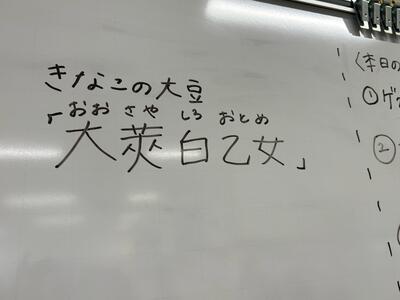 きなこの大豆
おおさやしろおとめ
「大莢白乙女」
〈本日の
①ゲ
②